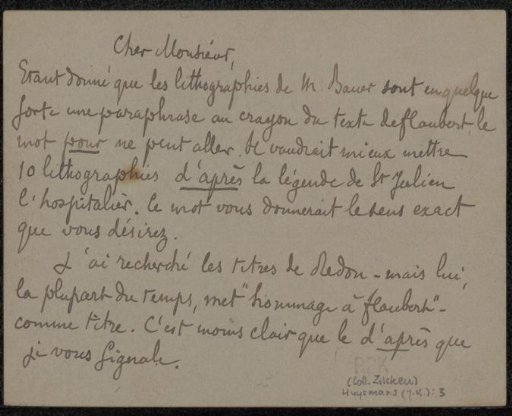 Cher Monsieur,
Etant donné que les lithographies de M. Bauer sont en quelque
sorte une paraphrase au crayon du texte de flaubert, le
mot pour ne peut aller. Il vaudrait mieux mettre
10 lithographies d'après la légende de St Julien
l'hospitalier. Ce mot vous donnerait le sens exact
que vous désirez.
J'ai recherché les titres de Redon - mais lui,
la plupart du temps, met "hommage à flaubert" -
comme titre. C'est moins clair que le d'après que
je vous signale.
(coll. Zilcken)
Huysmans (J.K.): 3